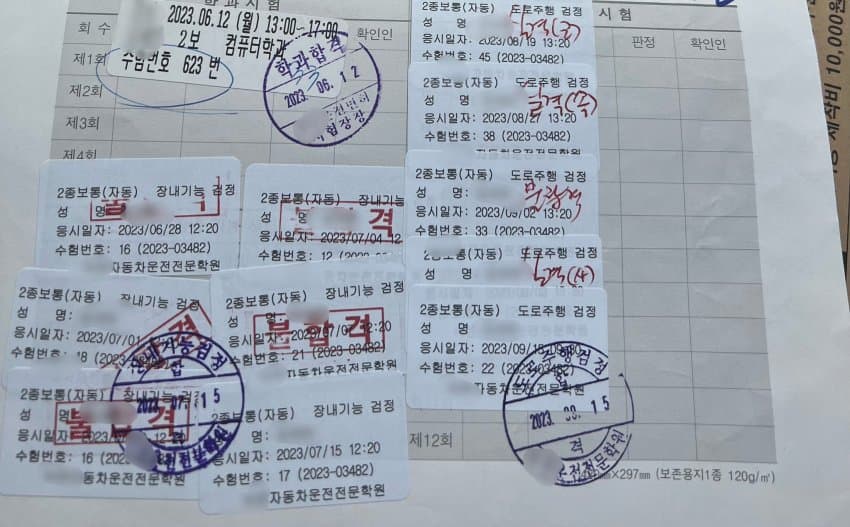 학 과 시 험
시 험
회 수
확인인
판정
확인인
제1회
제2회
제3회
제4회
제12회
2023.06.12 (월) 13:00~17:00
2보 컴퓨터학과
수험번호 623 번
학과합격
33
2023. 06. 12
2종보통(자동) 장내기능 검정
성 명
불
격
응시일자: 2023/06/28 12:20
수험번호: 16 (2023-03482)
자동차운전전문학원
2종보통(자동) 장내기능
성 명
격
응시일자: 2023/07/04 12
수험번호: 12 (2023-03482)
2종보통(자동) 장내기능 검정
성 명:
격
응시일자: 2023/07/01
수험번호: 18
2종보통(자동) 장내기능 검정
성 명:
불합격
응시일자: 2023/07/07 12:20
수험번호: 21 (2023-03482)
자동차운전전문학원
2종보통(자동) 장내기능 검
성 명
불 격
응시일자: 2023/07/ 12:20
수험번호: 16 (2023
동차운전전문학원
장내기능검정
합
2023. 07. 15
격
운전전문학원
2종보통(자동) 장내기능 검정
명:
응시일자: 2023/07/15 12:20
수험번호: 17 (2023-03482)
자동차운전전문학원
2종보통(자동) 도로주행 검정
성 명
응시일자: 2023/08/19 13:20
수험번호: 45 (2023-03482)
2종보통(자동) 도로주행 검정
성 명
응시일자: 2023/08/27 13:20
수험번호: 38 (2023-03482)
자동차운전전문학원
2종보통(자동) 도로주행 검정
성 명:
불합격
응시일자: 2023/09/02 13:20
수험번호: 33 (2023-03482)
2종보통(자동) 도로주행 검정
성 명
2종보통(자동) 도로주행 검정
성 명
응시일자: 2023/09/15
수험번호: 22 (2023-03482)
자동차운전전문학원
도로주행검정
합
2023. 15
격
운전전문학원
297㎜ (보존용지1종 120g/㎡)
제작비 10,000원